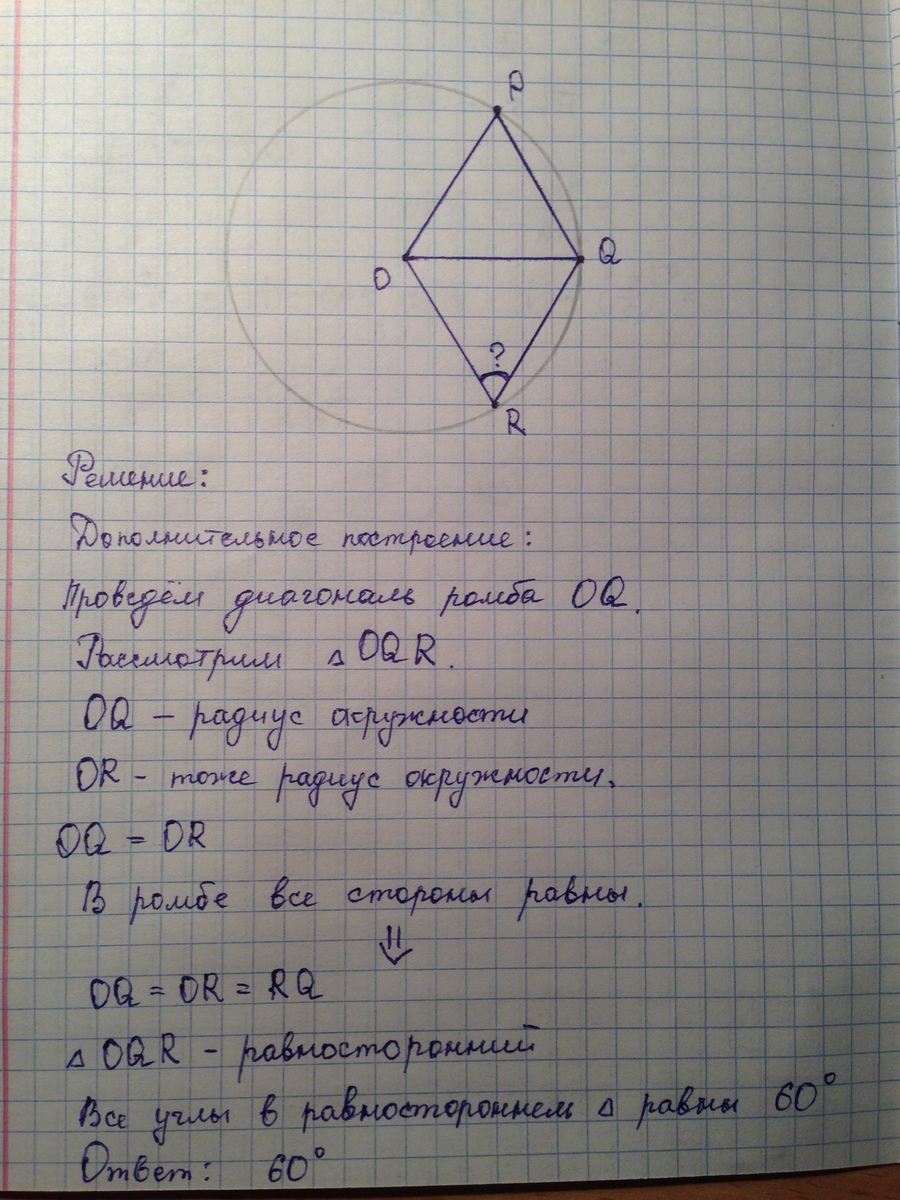 P
O
Q
?
R
Решение:
Дополнительное построение:
Проведём диагональ ромба OQ.
Рассмотрим △ OQR.
OQ — радиус окружности
OR - тоже радиус окружности.
OQ = OR
В ромбе все стороны равны.
⇓
OQ = OR = RQ
△ OQR - равносторонний
Все углы в равностороннем △ равны 60°
Ответ: 60°